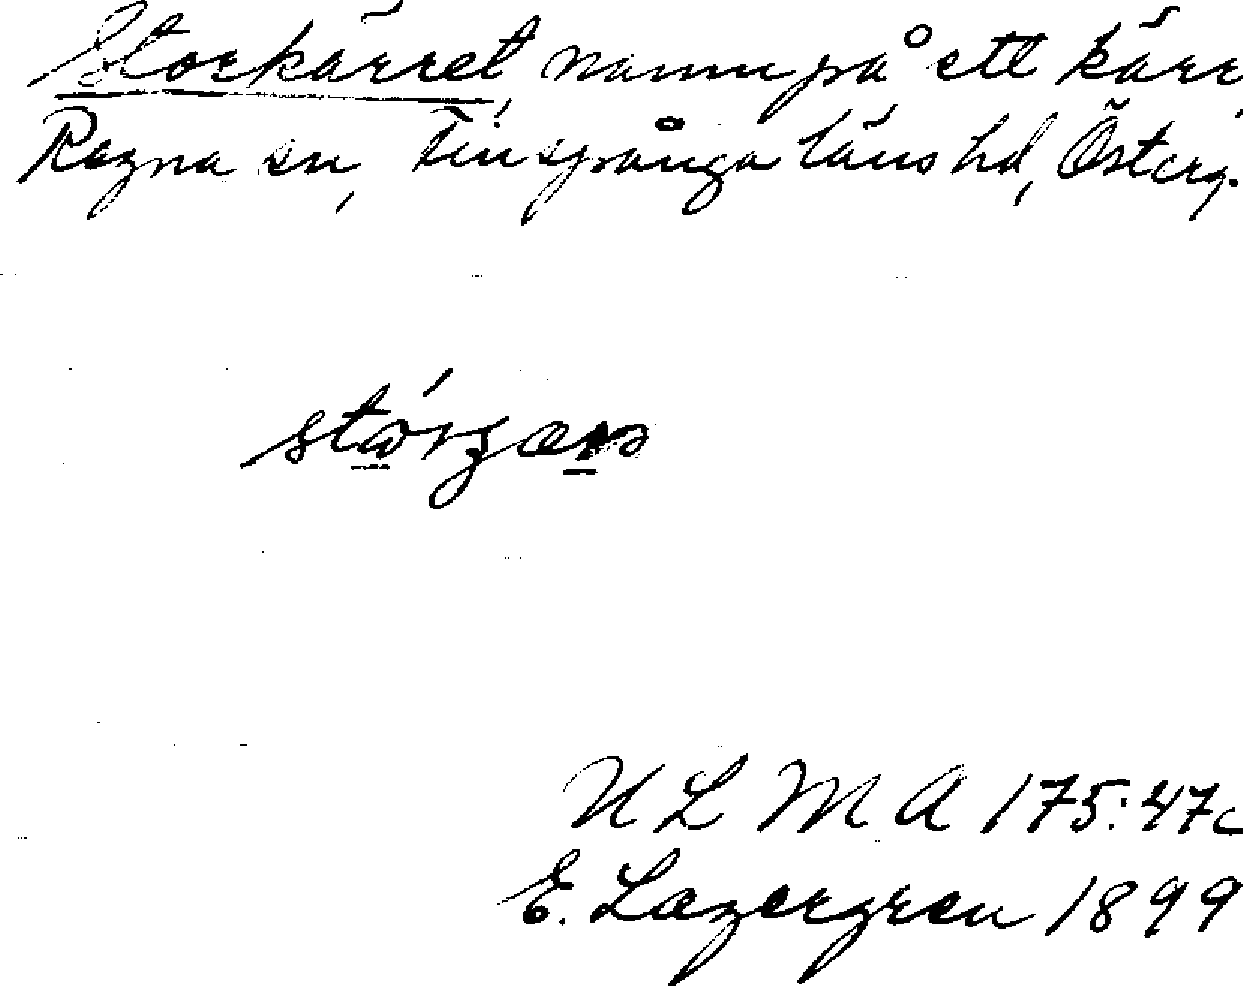 Storkärret namn på ett kärr,
Regna sn, Finspånga läns hd, Österg.
U L M A 175:47c
E. Lagergren 1899